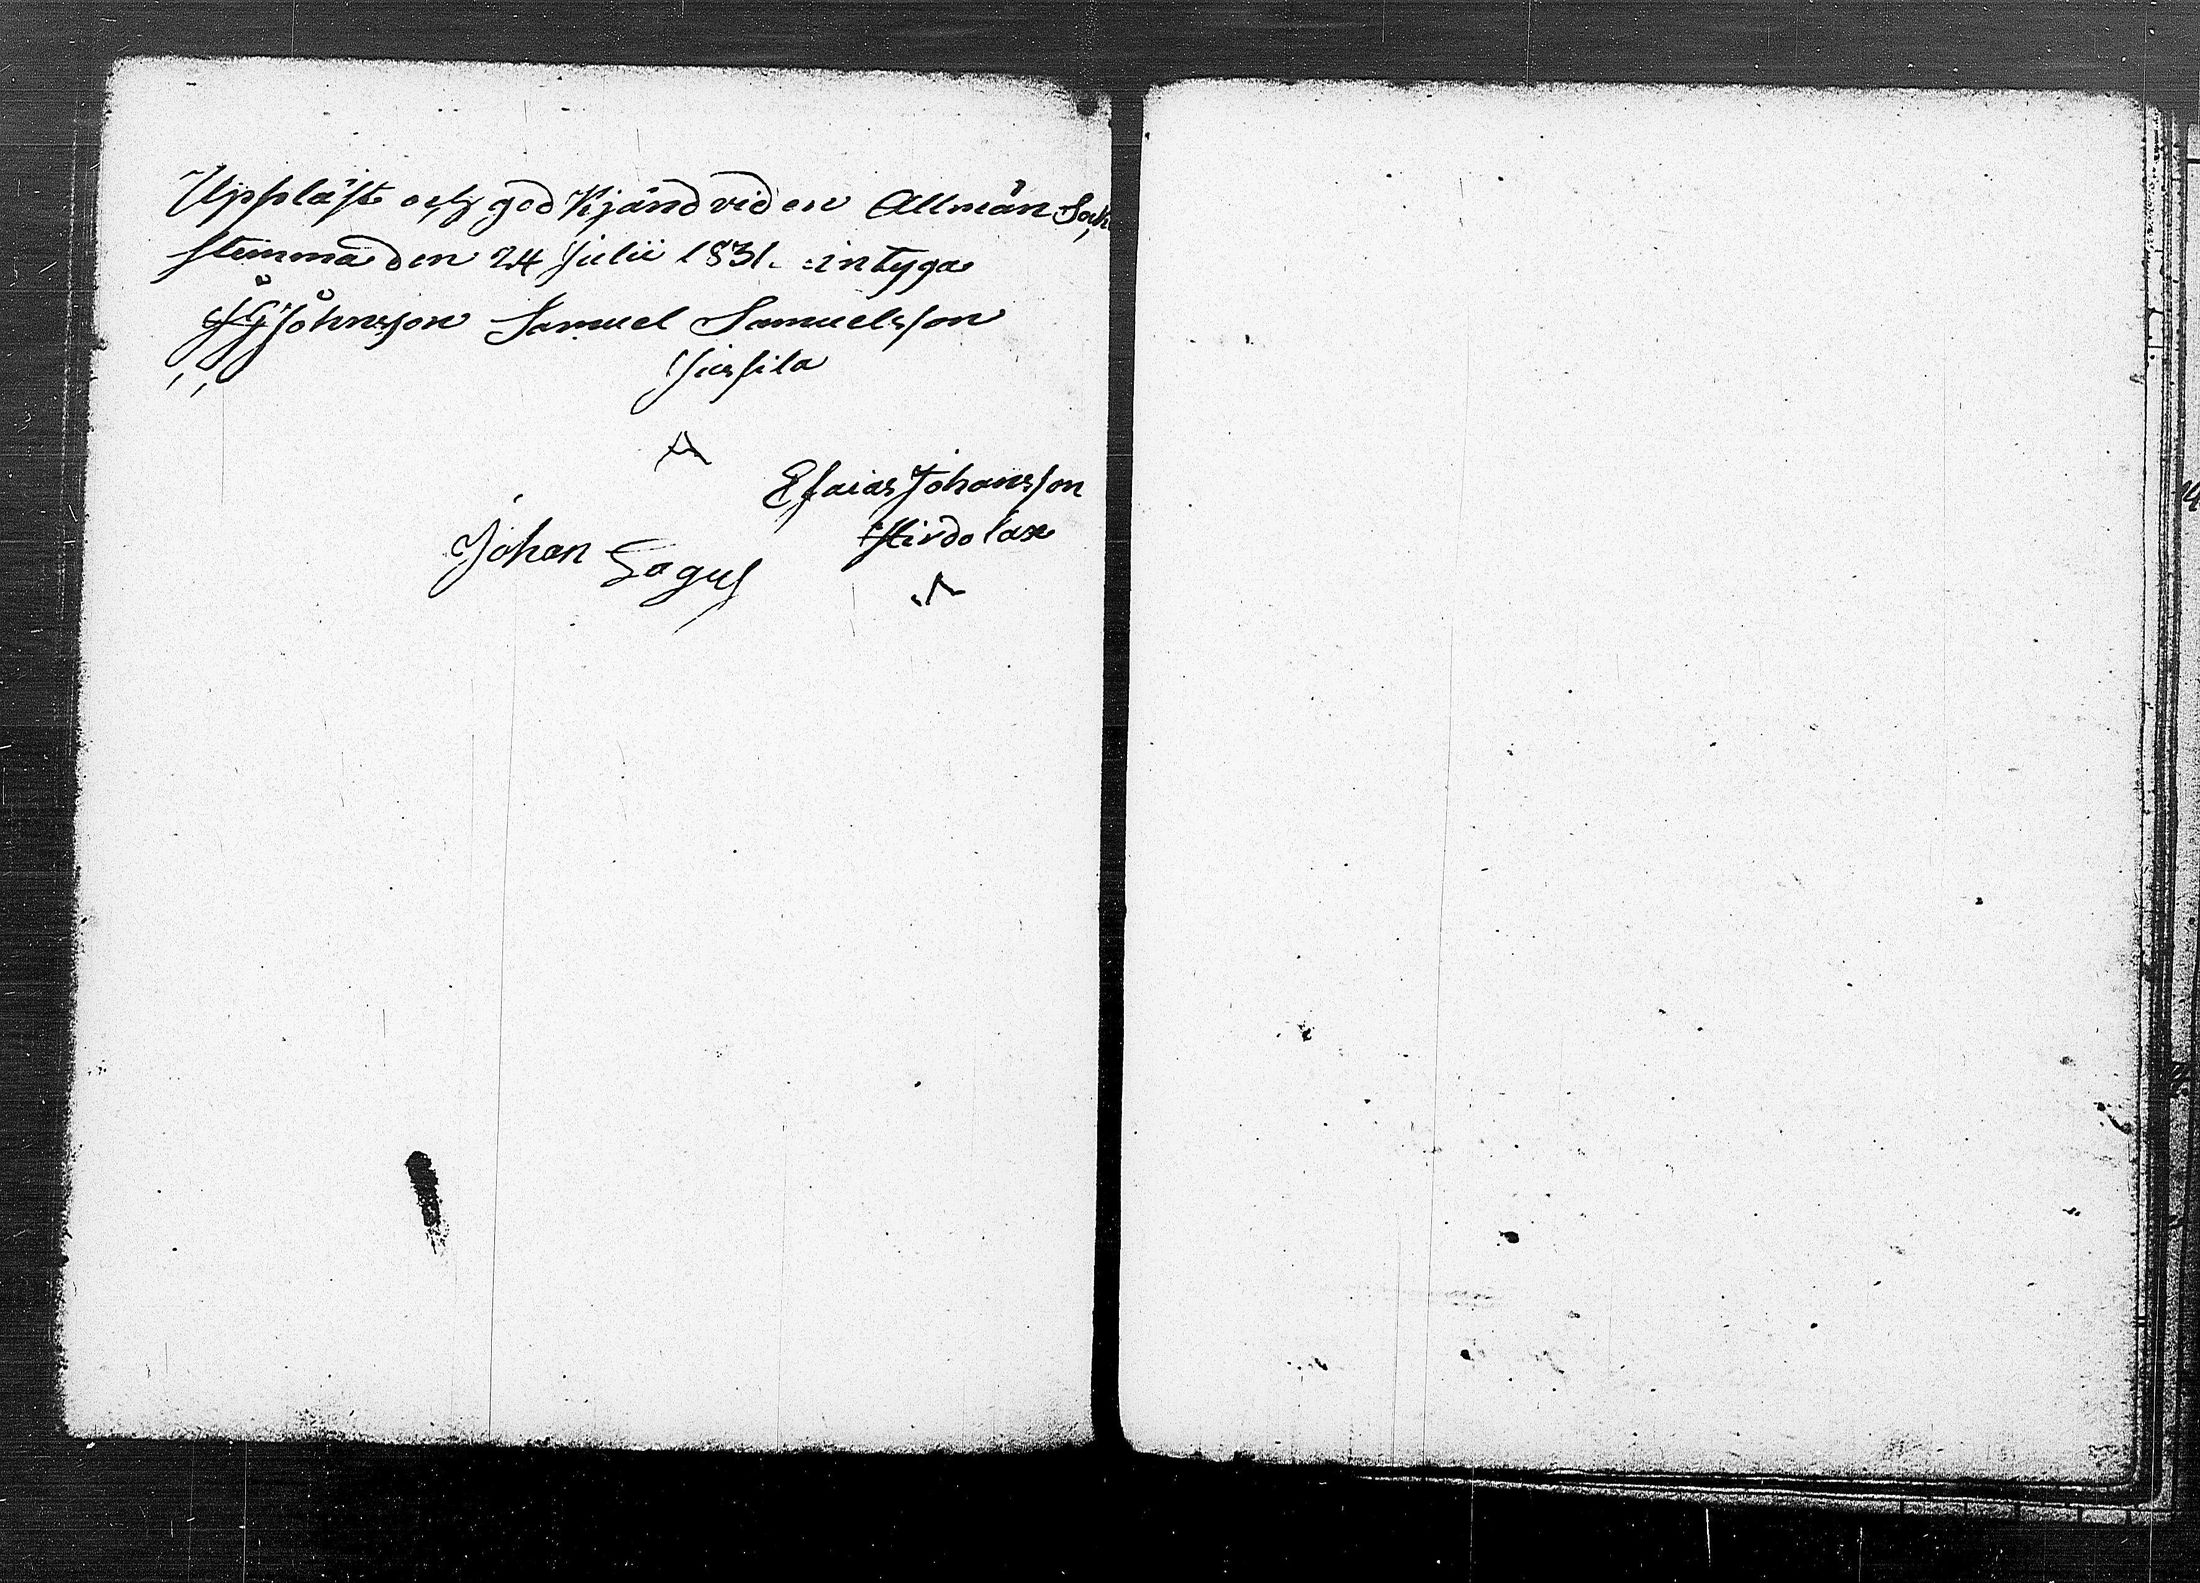 Uppläst och god Kjänd vid en Allmän Sock
stemma den 24 Julii 1831. intyga
Johnsson Samuel Samuelsson
Jussila
Esaias Johansson
Hirdolax
Johan Sagus